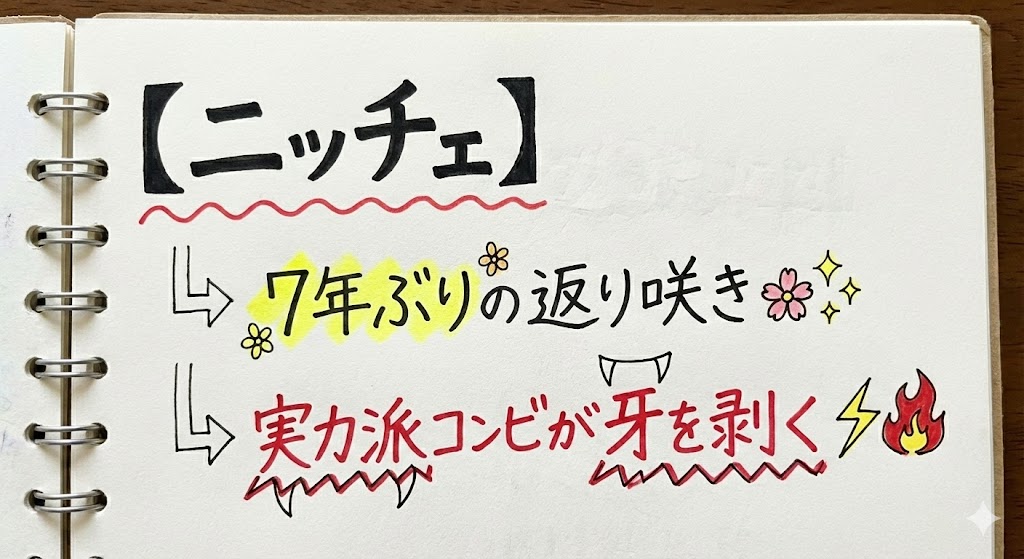 【ニッチェ】
7年ぶりの返り咲き
実力派コンビが牙を剥く